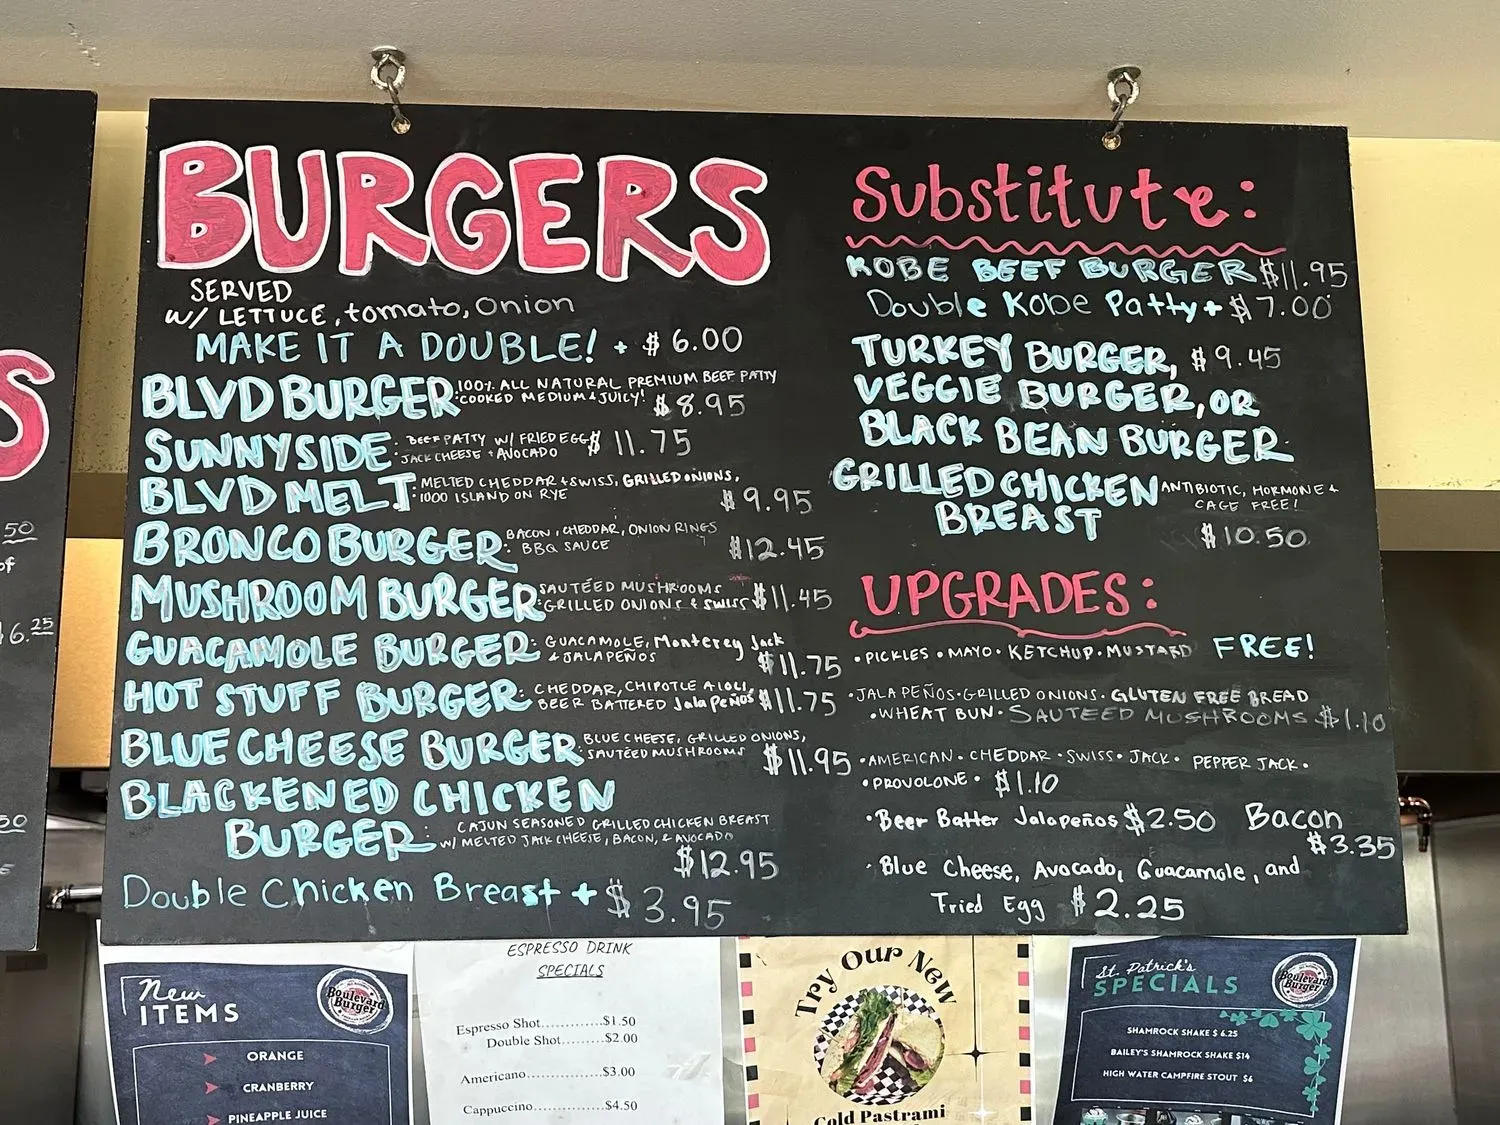 BURGERS
SERVED
W/ LETTUCE, tomato, Onion
MAKE IT A DOUBLE! + $6.00
BLVD BURGER: 100% ALL NATURAL PREMIUM BEEF PATTY
COOKED MEDIUM & JUICY! $8.95
SUNNYSIDE: BEEF PATTY W/ FRIED EGG $11.75
JACK CHEESE + AVOCADO
BLVD MELT: MELTED CHEDDAR + SWISS, GRILLED ONIONS,
1000 ISLAND ON RYE $9.95
BRONCO BURGER: BACON, CHEDDAR, ONION RINGS
BBQ SAUCE $12.45
MUSHROOM BURGER: SAUTÉED MUSHROOMS
GRILLED ONIONS & SWISS $11.45
GUACAMOLE BURGER: GUACAMOLE, Monterey Jack
& JALAPEÑOS $11.75
HOT STUFF BURGER: CHEDDAR, CHIPOTLE AIOLI,
BEER BATTERED Jalapeños $11.75
BLUE CHEESE BURGER: BLUE CHEESE, GRILLED ONIONS,
SAUTÉED MUSHROOMS $11.95
BLACKENED CHICKEN
BURGER: CAJUN SEASONED GRILLED CHICKEN BREAST
W/ MELTED JACK CHEESE, BACON, & AVOCADO
$12.95
Double Chicken Breast + $3.95
Substitute:
KOBE BEEF BURGER $11.95
Double Kobe Patty + $7.00
TURKEY BURGER, $9.45
VEGGIE BURGER, OR
BLACK BEAN BURGER
GRILLED CHICKEN ANTIBIOTIC, HORMONE +
BREAST CAGE FREE!
$10.50
UPGRADES:
• PICKLES • MAYO • KETCHUP • MUSTARD FREE!
• JALAPEÑOS • GRILLED ONIONS • GLUTEN FREE BREAD
• WHEAT BUN • SAUTEED MUSHROOMS $1.10
• AMERICAN • CHEDDAR • SWISS • JACK • PEPPER JACK •
• PROVOLONE • $1.10
• Beer Batter Jalapeños $2.50 Bacon
$3.35
• Blue Cheese, Avocado, Guacamole, and
Fried Egg $2.25
S
50
of
16.25
50
E
New
ITEMS
Boulevard
Burger
ORANGE
CRANBERRY
PINEAPPLE JUICE
ESPRESSO DRINK
SPECIALS
Espresso Shot............$1.50
Double Shot.........$2.00
Americano................$3.00
Cappuccino..............$4.50
Try Our New
Cold Pastrami
St. Patrick's
SPECIALS
Boulevard
Burger
SHAMROCK SHAKE $ 6.25
BAILEY'S SHAMROCK SHAKE $14
HIGH WATER CAMPFIRE STOUT $6